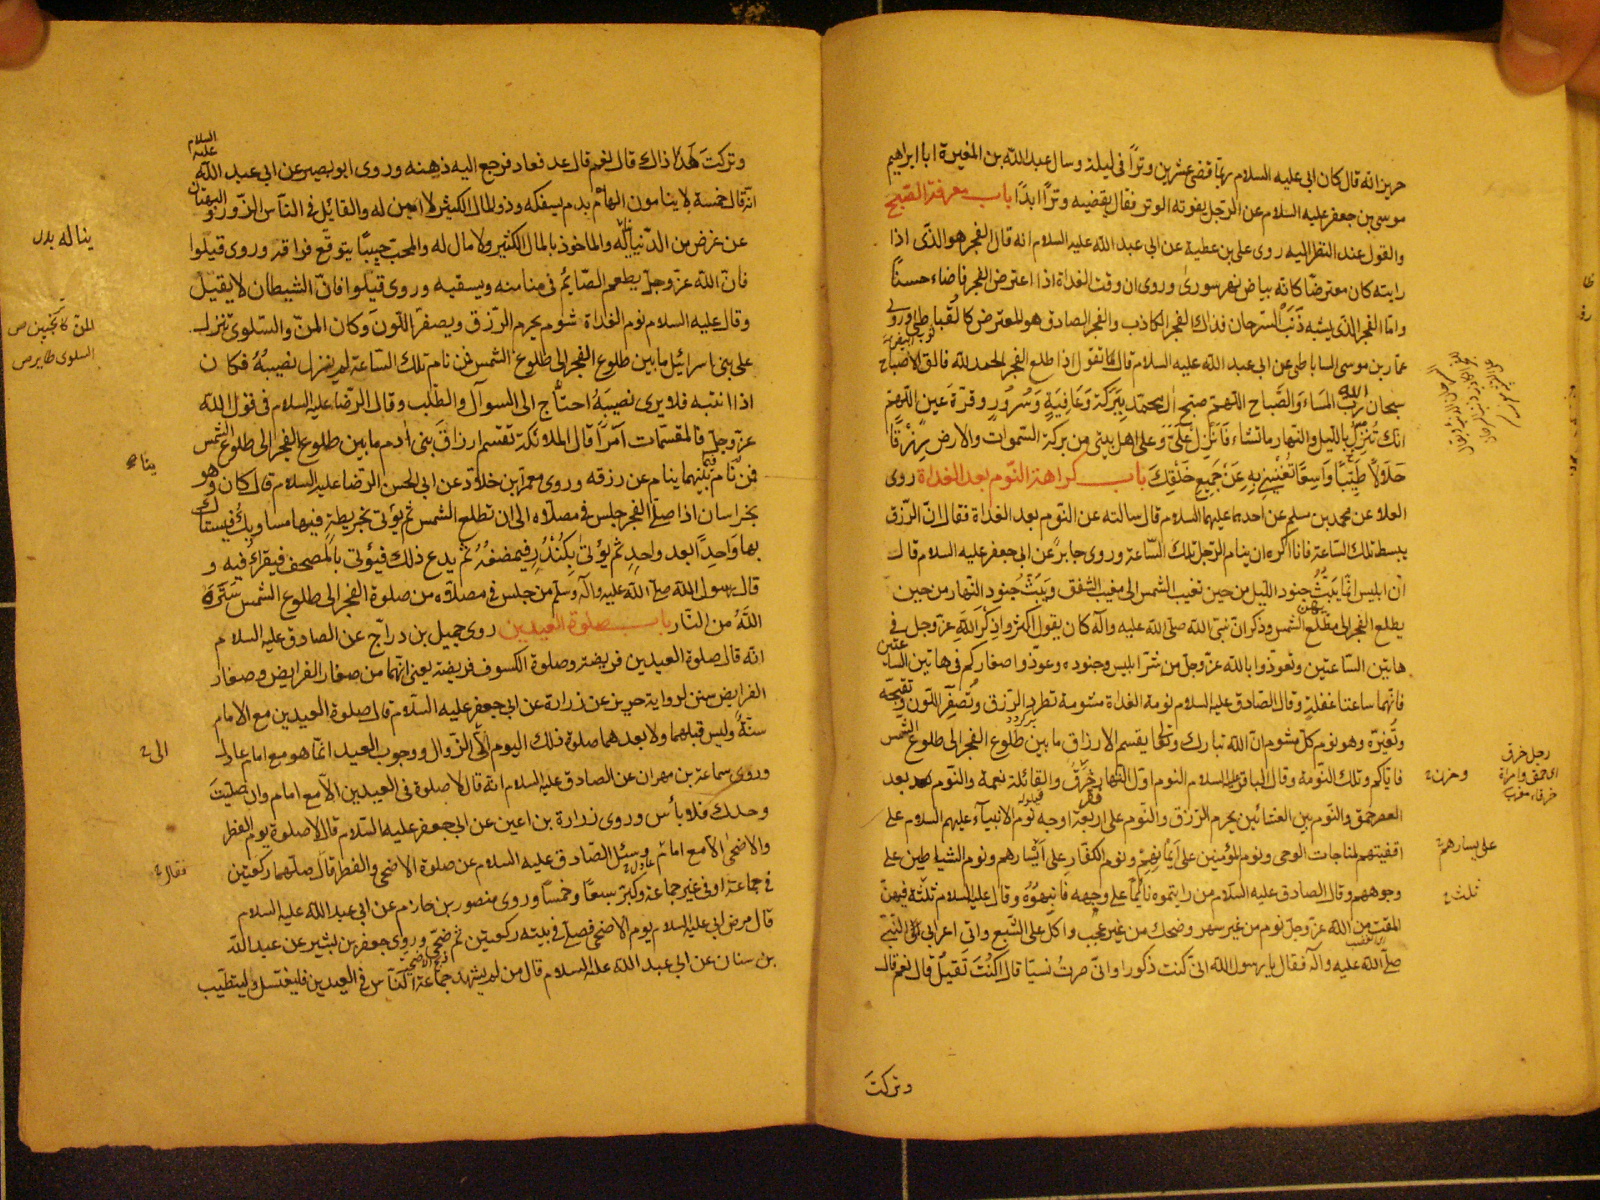 حريز انه قال كان ابى عليه السلام ربما قضى عشرين وتراً فى ليلة وسال عبد الله بن المغيرة ابا ابراهيم
موسى بن جعفر عليه السلام عن الرجل يفوته الوتر فقال يقضيه وتراً ابداً باب معرفة الصبح
والقول عند النظر اليه روى على بن عطية عن ابى عبد الله عليه السلام انه قال الفجر هو الذى اذا
رايته كان معترضاً كانه بياض نهر سورى وروى ان وقت الغداة اذا اعترض الفجر فاضاء حسناً
واما الفجر الذى يشبه ذنب السرحان فذاك الفجر الكاذب والفجر الصادق هو المعترض كالقباطى وروى
عمار بن موسى الساباطى عن ابى عبد الله عليه السلام قال تقول اذا طلع الفجر الحمد لله فالق الاصباح
سبحان الله رب المساء والصباح اللهم صبح آل محمد ببركة وعافية وسرور وقرة عين اللهم
انك تنزل بالليل والنهار ما تشاء فانزل على وعلى اهل بيتى من بركة السموات والارض رزقاً
حلالاً طيباً واسعاً تغنينى به عن جميع خلقك باب كراهة النوم بعد الغداة روى
العلاء عن محمد بن مسلم عن احدهما عليهما السلام قال سالته عن النوم بعد الغداة فقال ان الرزق
يبسط تلك الساعة فانا اكره ان ينام الرجل تلك الساعة وروى جابر عن ابى جعفر عليه السلام قال
ان ابليس انما يبث جنود الليل من حين تغيب الشمس الى مغيب الشفق ويبث جنود النهار من حين
يطلع الفجر الى مطلع الشمس وذكر ان نبى الله صلى الله عليه وآله كان يقول اكثروا ذكر الله عز وجل فى
هاتين الساعتين وتعوذوا بالله عز وجل من شر ابليس وجنوده وعوذوا صغاركم فى هاتين الساعتين
فانهما ساعتا غفلة وقال الصادق عليه السلام نومة الغداة مشومة تطرد الرزق وتصفر اللون وتقبحه
وتغيره وهو نوم كل مشوم ان الله تبارك وتعالى يقسم الارزاق ما بين طلوع الفجر الى طلوع الشمس
فاياكم وتلك النومة وقال الباقر عليه السلام النوم اول النهار خرق والقائلة نعمة والنوم بعد
العصر حمق والنوم بين العشائين يحرم الرزق والنوم على اربعة اوجه نوم الانبياء عليهم السلام على
اقفيتهم لمناجات الوحى ونوم المؤمنين على ايمانهم ونوم الكفار على ايسارهم ونوم الشياطين على
وجوههم وقال الصادق عليه السلام من رايتموه نائماً على وجهه فانبهوه وقال عليه السلام ثلثة فيهن
المقت من الله عز وجل نوم من غير سهر وضحك من غير عجب واكل على الشبع واتى اعرابى الى النبى
صلى الله عليه وآله فقال يا رسول الله انى كنت ذكورا وانى صرت نسيا قال اكنت تقيل قال نعم قال
وتركت
رجل خرق
اى حمق وامراة
خرقاء
على يسارهم
ثلث
وتركت هذا ذاك قال نعم قال عد فعاد فرجع اليه ذهنه وروى ابو بصير عن ابى عبد الله عليه السلام
انه قال خمسة لا ينامون الهام بدم يسفكه وذو المال الكثير لا امين له والقائل فى الناس الزور والبهتان
عن عرض من الدنيا يناله والماخوذ بالمال الكثير ولا مال له والمحب حبيباً يتوقع فراقه وروى قيلوا
فان الله عز وجل يطعم الصائم فى منامه ويسقيه وروى قيلوا فان الشيطان لا يقيل
وقال عليه السلام نوم الغداة شوم يحرم الرزق ويصفر اللون وكان المن والسلوى ينزل
على بنى اسرائيل ما بين طلوع الفجر الى طلوع الشمس فمن نام تلك الساعة لم ينزل نصيبه فكان
اذا انتبه فلا يرى نصيبه احتاج الى السوآل والطلب وقال الرضا عليه السلام فى قول الله
عز وجل فالمقسمات امراً قال الملائكة تقسم ارزاق بنى ادم ما بين طلوع الفجر الى طلوع الشمس
فمن نام فيما بينهما ينام عن رزقه وروى معمر بن خلاد عن ابى الحسن الرضا عليه السلام قال كان وهو
بخراسان اذا صلى الفجر جلس فى مصلاه الى ان تطلع الشمس ثم يؤتى بخريطة فيها مساويك فيستاك
بها واحداً بعد واحد ثم يؤتى بكندر فيمضغه ثم يدع ذلك فيؤتى بالمصحف فيقراء فيه و
قال رسول الله صلى الله عليه وآله وسلم من جلس فى مصلاه من صلوة الفجر الى طلوع الشمس ستره
الله من النار باب صلوة العيدين روى جميل بن دراج عن الصادق عليه السلام
انه قال صلوة العيدين فريضة وصلوة الكسوف فريضة يعنى انهما من صغار الفرايض وصغار
الفرايض سنن لرواية حريز عن زرارة عن ابى جعفر عليه السلام قال صلوة العيدين مع الامام
سنة وليس قبلهما ولا بعدهما صلوة ذلك اليوم الى الزوال ووجوب العيد انما هو مع امام عادل
وروى سماعة بن مهران عن الصادق عليه السلام انه قال لا صلوة فى العيدين الا مع امام وان صليت
وحدك فلا بأس وروى زرارة بن اعين عن ابى جعفر عليه السلام قال لا صلوة يوم الفطر
والاضحى الا مع امام وسئل الصادق عليه السلام عن صلوة الاضحى والفطر قال صلهما ركعتين
فى جماعة او فى غير جماعة وكبر سبعاً وخمساً وروى منصور بن حازم عن ابى عبد الله عليه السلام
قال مرض ابى عليه السلام يوم الاضحى فصلى فى بيته ركعتين ثم ضحى وروى جعفر بن بشير عن عبد الله
بن سنان عن ابى عبد الله عليه السلام قال من لم يشهد جماعة الناس فى العيدين فليغتسل وليتطيب
يناله بدل
السلوى طاير ص
الى
فقال